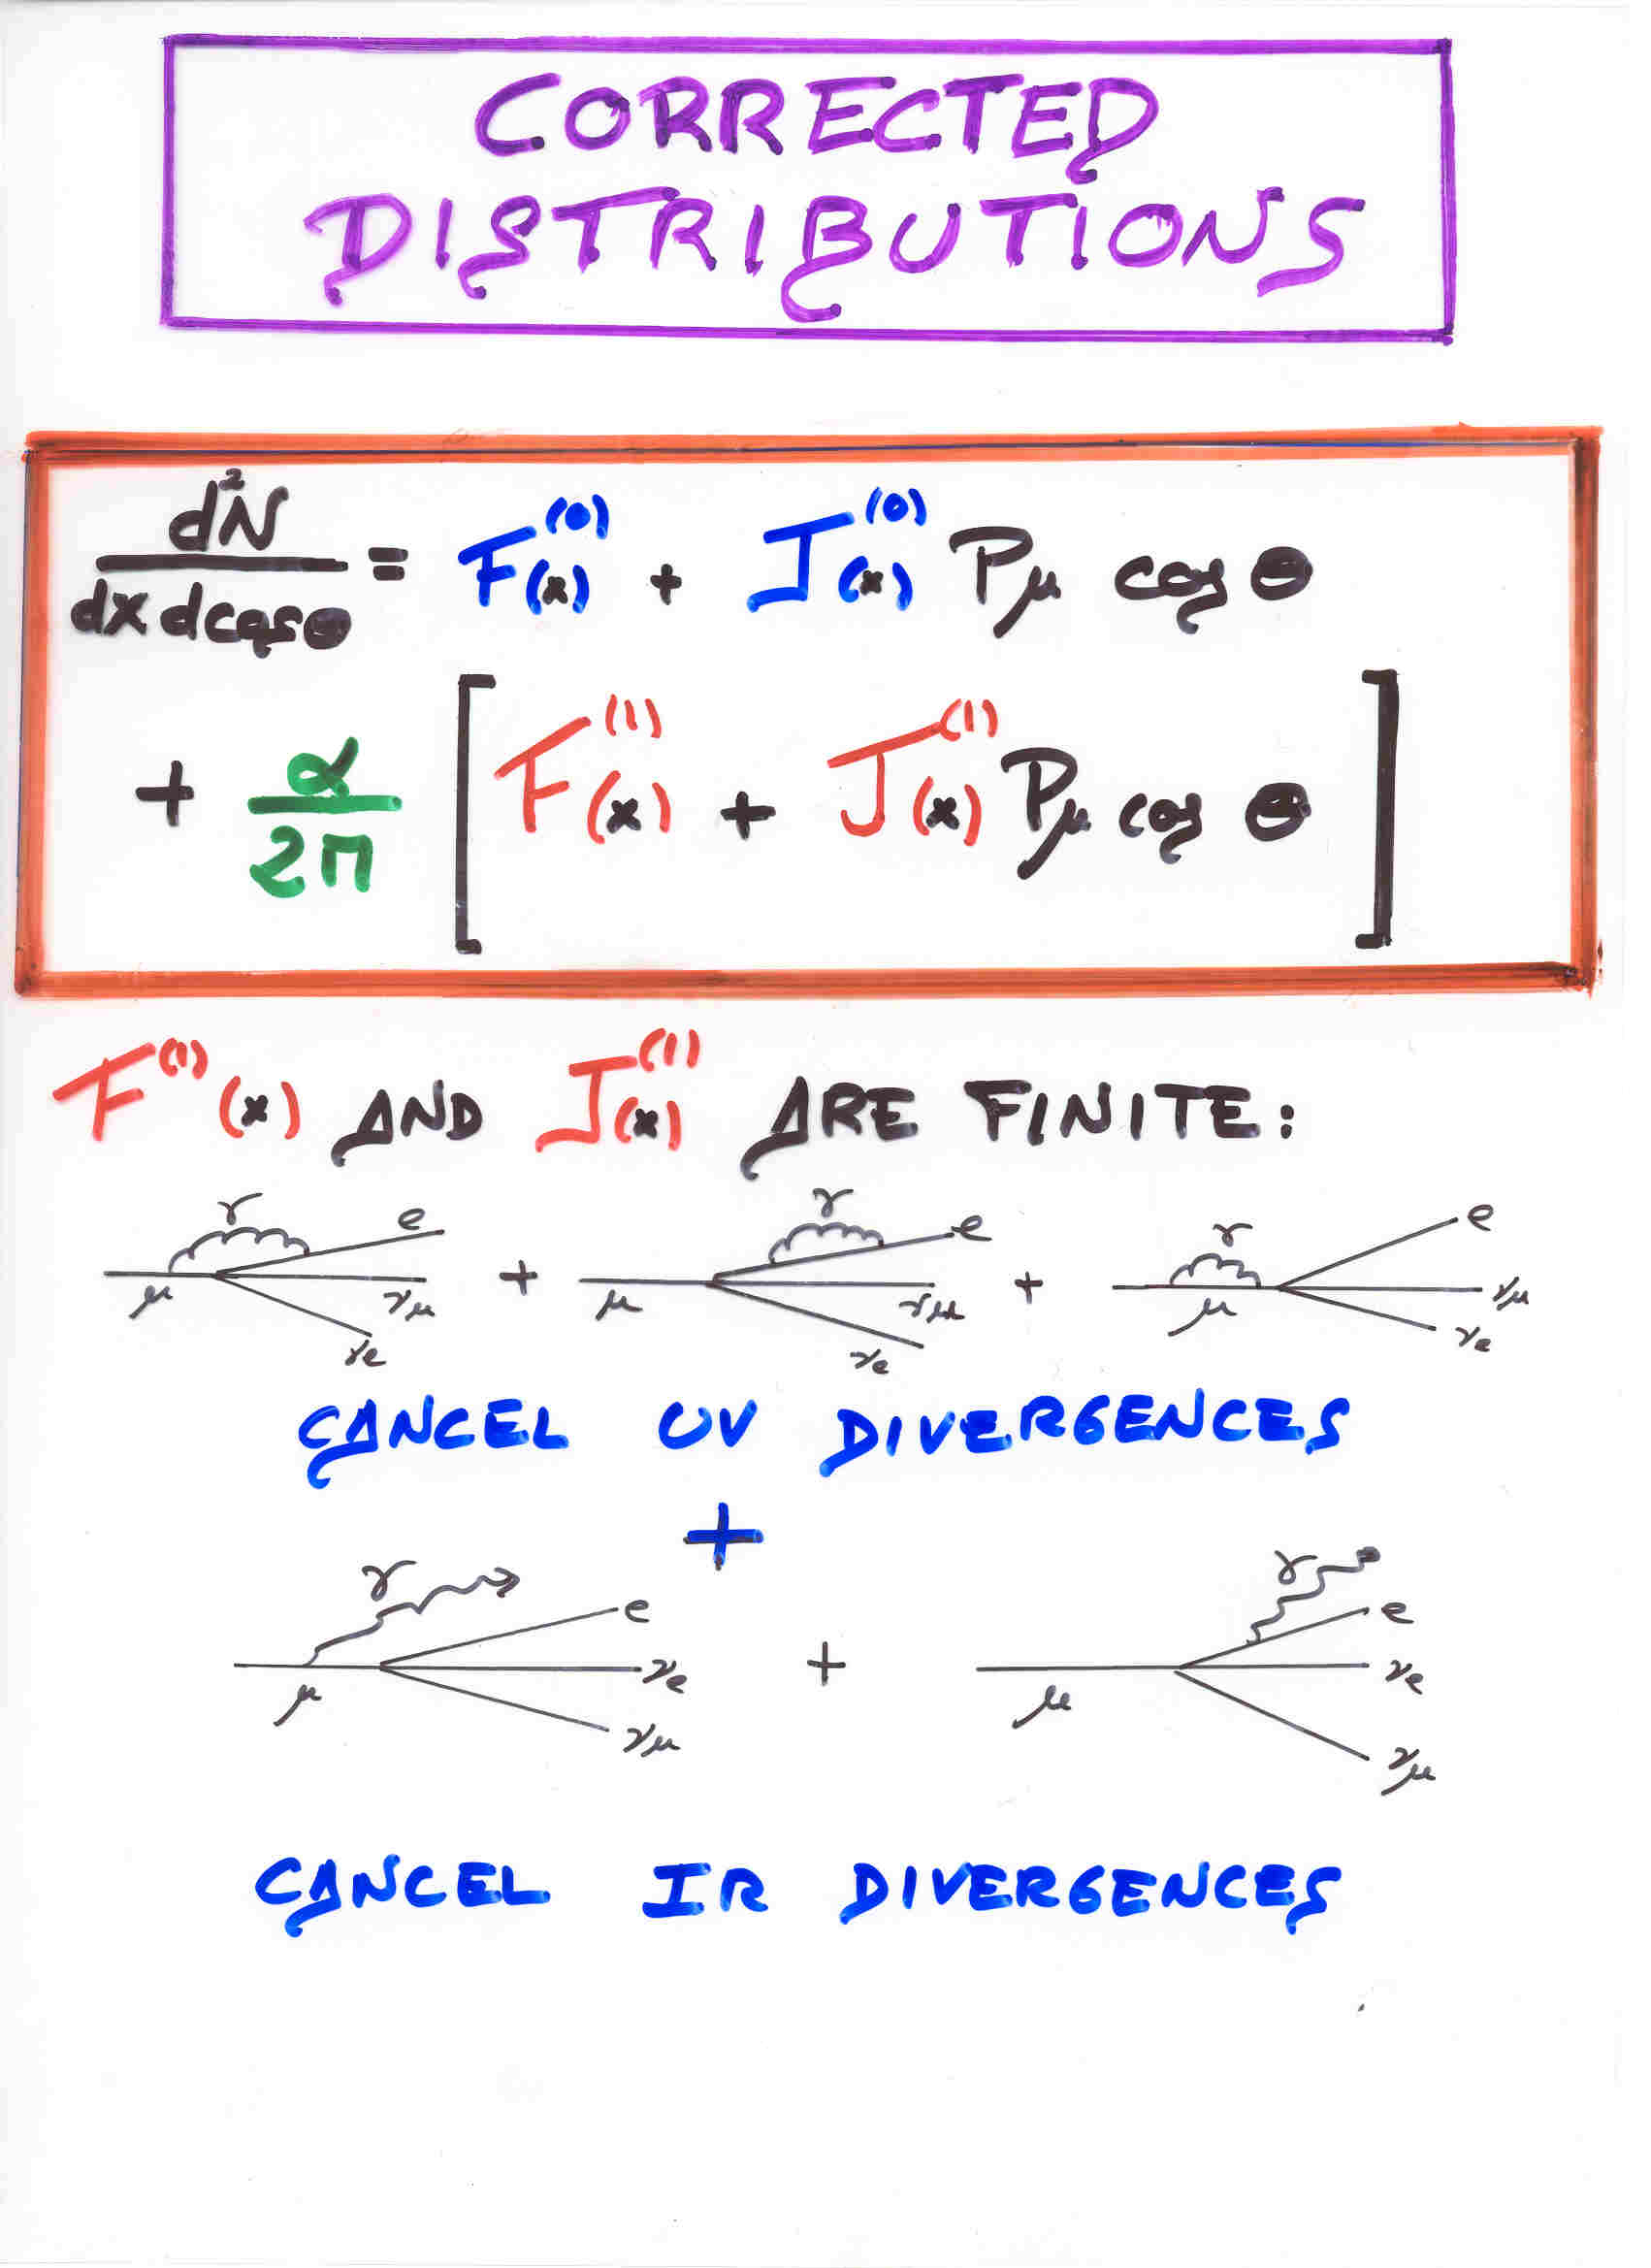 CORRECTED
DISTRIBUTIONS
d²N / dx dcosθ = F⁽⁰⁾(x) + J⁽⁰⁾(x) Pμ cos θ
+ α/2π [ F⁽¹⁾(x) + J⁽¹⁾(x) Pμ cos θ ]
F⁽¹⁾(x) AND J⁽¹⁾(x) ARE FINITE:
γ e μ νμ νe + γ e μ νμ νe + γ e μ νμ νe
CANCEL UV DIVERGENCES
+
γ e μ νe νμ + γ e μ νe νμ
CANCEL IR DIVERGENCES